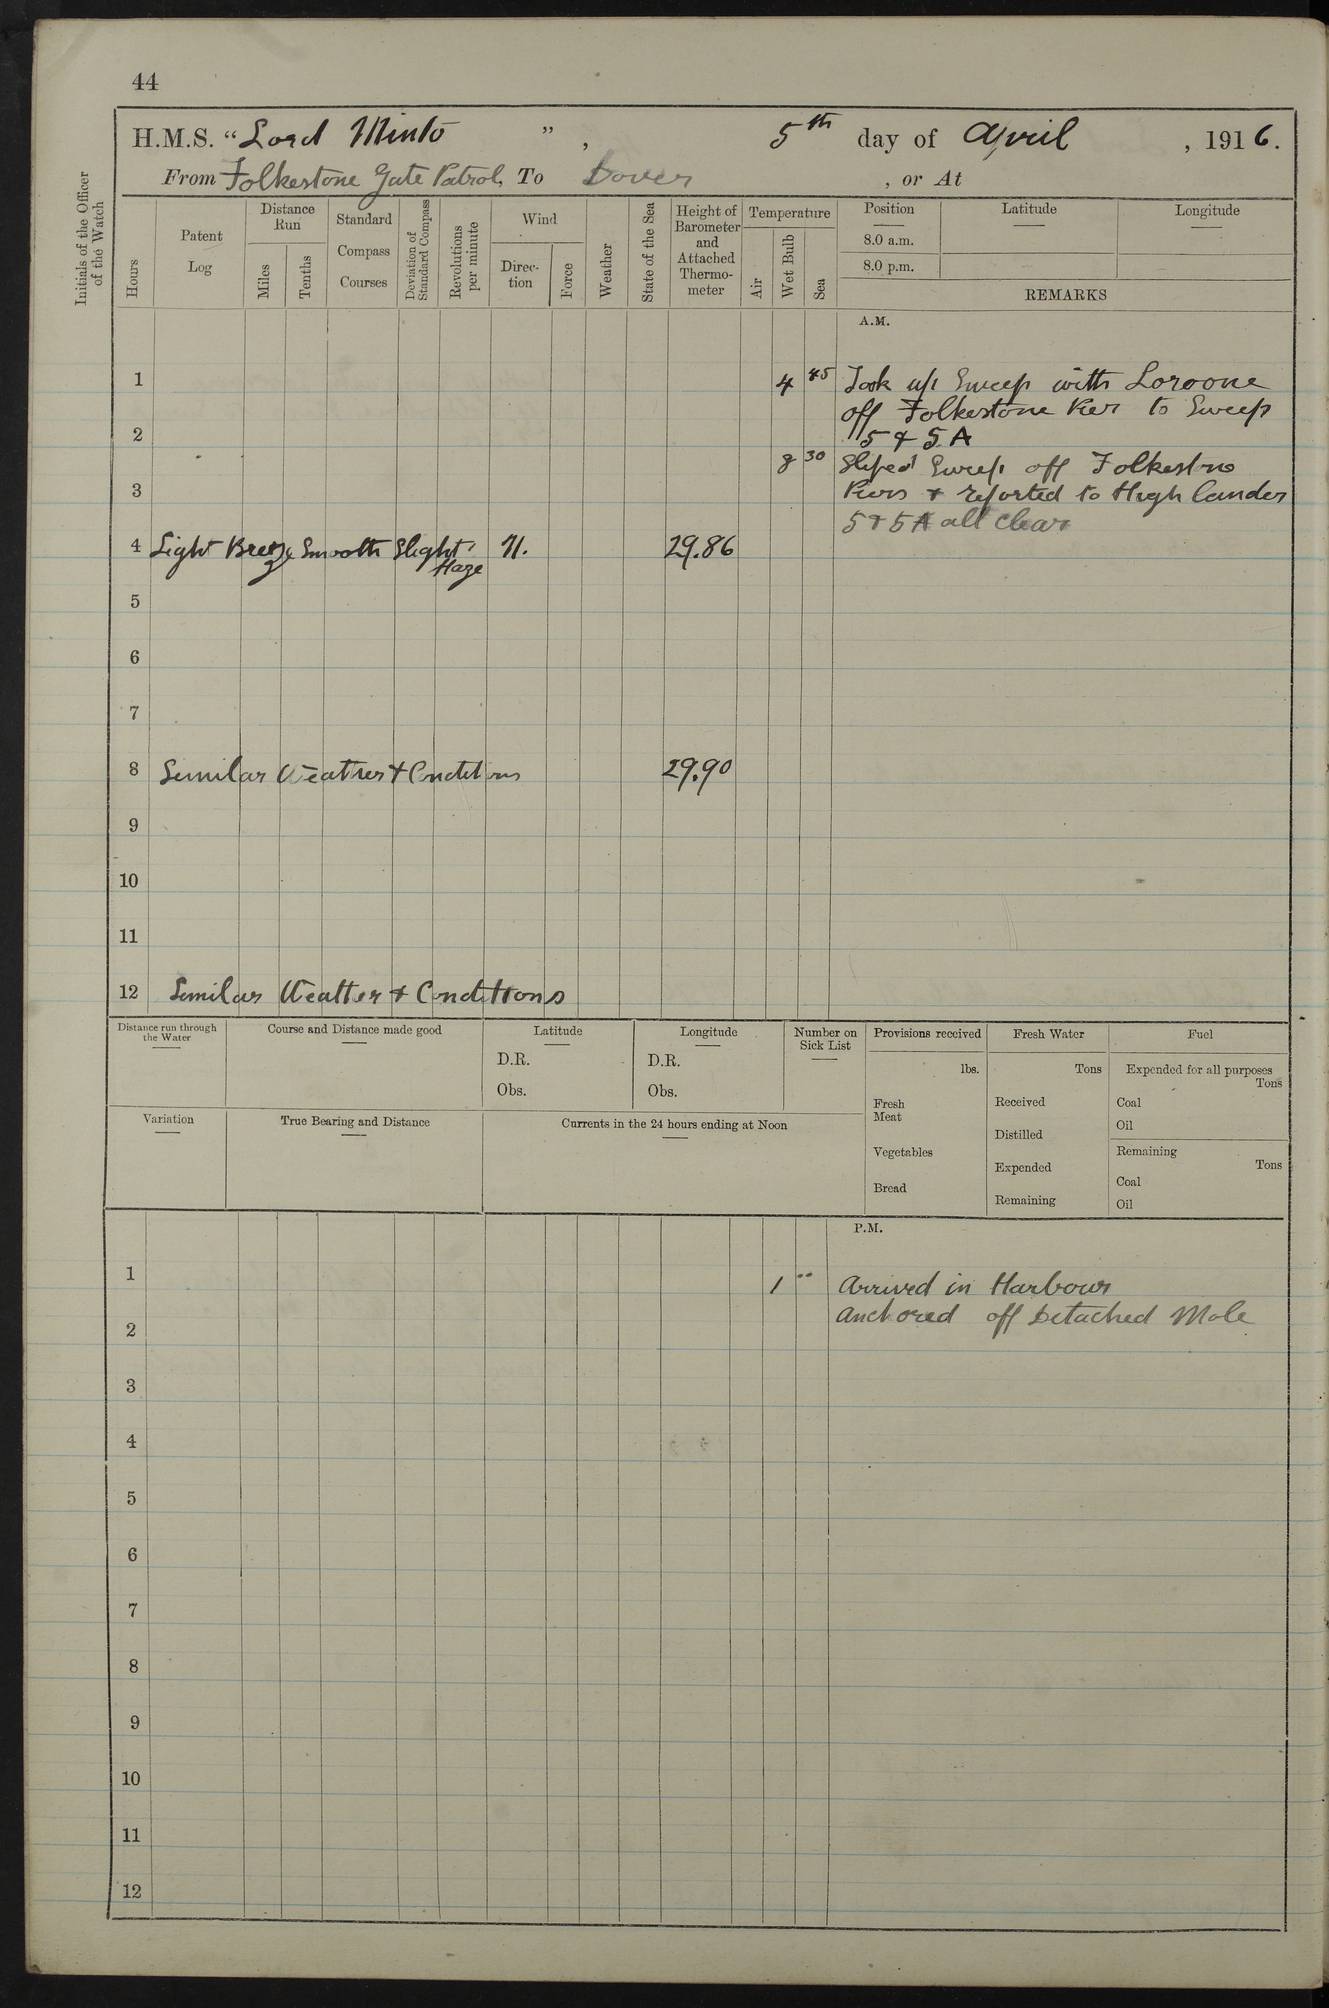 44
H.M.S. "Lord Minto", 5th day of April, 1916.
From Folkestone Gate Patrol, To Dover, or At
Initials of the Officer of the Watch
Hours
Patent Log
Distance Run
Miles
Tenths
Standard Compass Courses
Deviation of Standard Compass
Revolutions per minute
Wind
Direction
Force
Weather
State of the Sea
Height of Barometer and Attached Thermometer
Temperature
Air
Wet Bulb
Sea
Position
8.0 a.m.
8.0 p.m.
Latitude
Longitude
REMARKS
A.M.
1
4 45 Took up Sweep with Loroone
off Folkestone Pier to Sweep
2
5 & 5A
8 30 Sliped Sweep off Folkestne
3
Piers & reported to Highlander
5 & 5A all clear
4 Light Breeze Smooth Slight Haze N. 29.86
5
6
7
8 Similar Weather & Conditions 29.90
9
10
11
12 Similar Weather & Conditions
Distance run through the Water
Course and Distance made good
Latitude
D.R.
Obs.
Longitude
D.R.
Obs.
Number on Sick List
Provisions received
lbs.
Fresh Meat
Vegetables
Bread
Fresh Water
Tons
Received
Distilled
Expended
Remaining
Fuel
Expended for all purposes
Tons
Coal
Oil
Remaining
Tons
Coal
Oil
Variation
True Bearing and Distance
Currents in the 24 hours ending at Noon
P.M.
1
1 " Arrived in Harbour
Anchored off Detached Mole
2
3
4
5
6
7
8
9
10
11
12